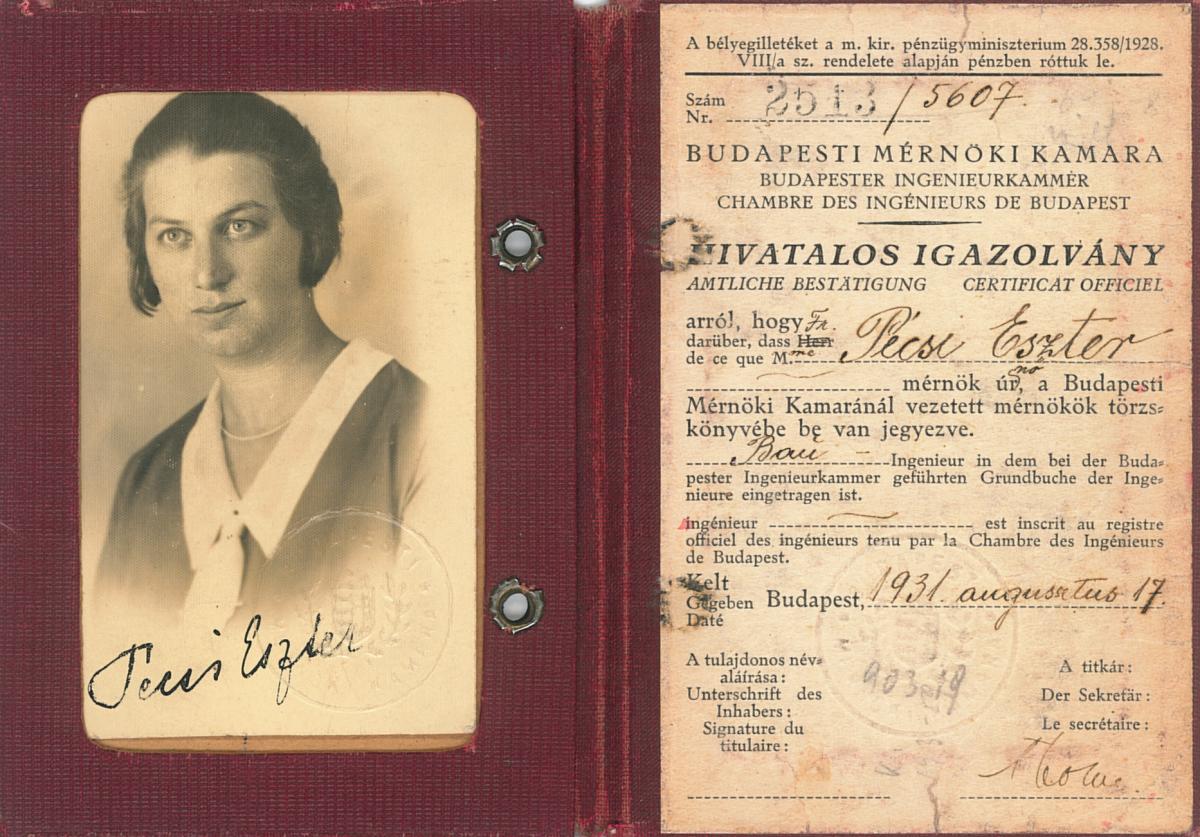 Pécsi Eszter
A bélyegilletéket a m. kir. pénzügyminiszterium 28.358/1928.
VIII/a sz. rendelete alapján pénzben róttuk le.
Szám
Nr. 2513 / 5607.
BUDAPESTI MÉRNÖKI KAMARA
BUDAPESTER INGENIEURKAMMER
CHAMBRE DES INGÉNIEURS DE BUDAPEST
HIVATALOS IGAZOLVÁNY
AMTLICHE BESTÄTIGUNG CERTIFICAT OFFICIEL
arról, hogy Fr.
darüber, dass Herr Pécsi Eszter
de ce que M.me
mérnök úr, nő a Budapesti
Mérnöki Kamaránál vezetett mérnökök törzs=
könyvébe be van jegyezve.
Bau - Ingenieur in dem bei der Buda=
pester Ingenieurkammer geführten Grundbuche der Inge=
nieure eingetragen ist.
ingénieur est inscrit au registre
officiel des ingénieurs tenu par la Chambre des Ingénieurs
de Budapest.
Kelt
Gegeben Budapest, 1931. augusztus 17.
Daté
A tulajdonos név=
aláírása:
Unterschrift des
Inhabers:
Signature du
titulaire:
A titkár:
Der Sekretär:
Le secrétaire: